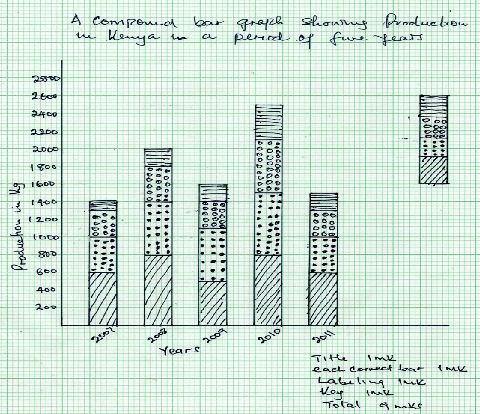 A compound bar graph showing Production
in Kenya in a period of five years
2800
2600
2400
2200
2000
1800
1600
1400
1200
1000
800
600
400
200
Production in Kg
2007
2008
2009
2010
2011
Years
Title 1mk
each correct bar 1mk
Labeling 1mk
Key 1mk
Total 9mks